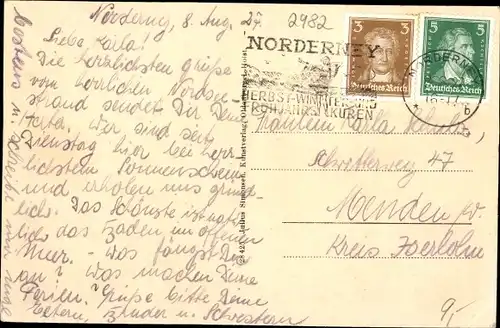 Norderney, 8. Aug. 27.
Liebe Karla!
Die herzlichsten Grüße
vom herrlichen Nordsee-
strand sendet Dir Deine
Wir sind seit
Dienstag hier bei herr-
lichstem Sonnenschein
und erholen uns gründ-
lich. Das Schönste ist natür-
lich das Baden im offenen
Meer. - Was fängst Du
an? Was machen Deine
Ferien? Grüße bitte Deine
Eltern, Bruder u. Schwestern
2982
NORDERNEY
HERBST-WINTER UND
FRÜHJAHRSKUREN
3 3
Deutsches Reich
5 5
Deutsches Reich
NORDERNEY
Fräulein Karla
47
Menden
Kreis Iserlohn
9,-